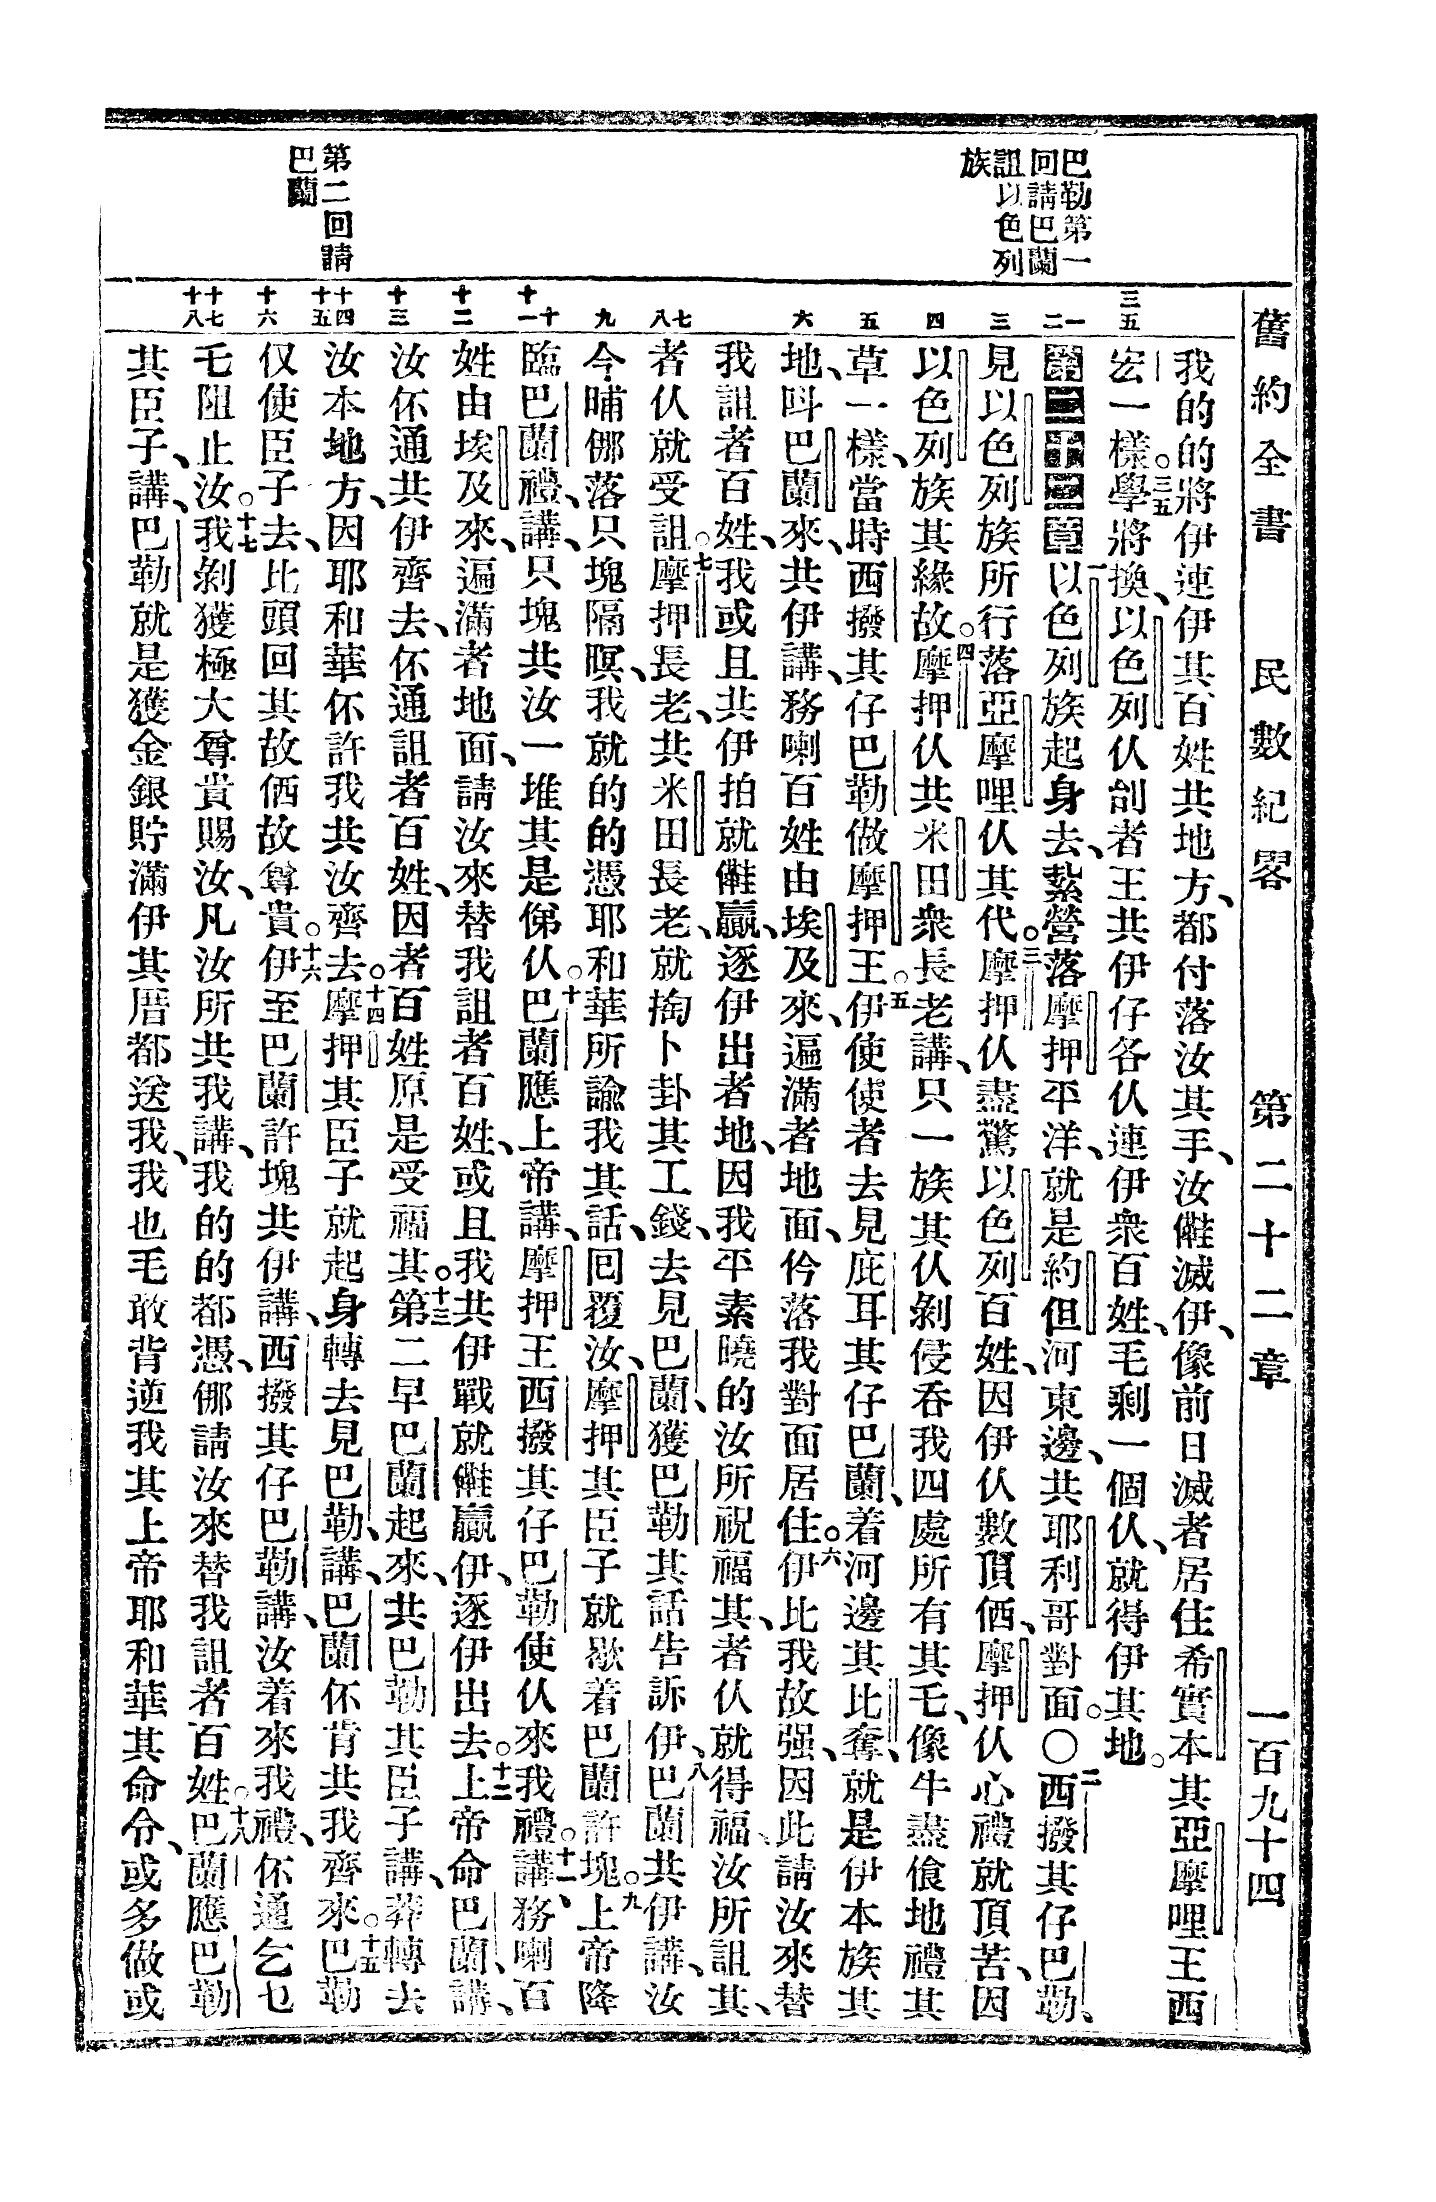 舊約全書 民數紀畧 第二十二章 一百九十四
巴勒第一
回請巴蘭
詛以色列
族
第二回請
巴蘭
我的的將伊連伊其百姓共地方、都付落汝其手、汝𣍐滅伊、像前日滅者居住希實本其亞摩哩王西
宏一樣。三五學將換、以色列仈刣者王共伊仔各仈連伊衆百姓、毛剩一個仈、就得伊其地。
第二十二章 一以色列族起身去、紮營落摩押平洋、就是約但河東邊、共耶利哥對面。〇二西撥其仔巴勒、
見以色列族所行落亞摩哩仈其代。三摩押仈盡驚以色列百姓、因伊仈數頂価、摩押仈心禮就頂苦、因
以色列族其緣故。四摩押仈共米田衆長老講、只一族其仈剝侵吞我四處所有其乇、像牛盡飡地禮其
草一樣、當時西撥其仔巴勒做摩押王。五伊使使者去見庇耳其仔巴蘭、着河邊其比奪、就是伊本族其
地、呌巴蘭來、共伊講、務喇百姓由埃及來、遍滿者地面、仱落我對面居住。六伊比我故强、因此請汝來替
我詛者百姓、我或且共伊拍就𣍐贏、逐伊出者地、因我平素曉的汝所祝福其、者仈就得福、汝所詛其、
者仈就受詛。七摩押長老、共米田長老、就掏卜卦其工錢、去見巴蘭、獲巴勒其話告訴伊、八巴蘭共伊講、汝
今晡㑚落只塊隔暝、我就的的憑耶和華所諭我其話、囘覆汝、摩押其臣子就歇着巴蘭許塊。九上帝降
臨巴蘭禮、講、只塊共汝一堆其是俤仈。十巴蘭應上帝講、摩押王西撥其仔巴勒、使仈來我禮。講十一、務喇百
姓由埃及來、遍滿者地面、請汝來替我詛者百姓、或且我共伊戰就𣍐贏伊、逐伊出去。十二上帝命巴蘭、講、
汝伓通共伊齊去、伓通詛者百姓、因者百姓原是受福其。十三第二早巴蘭起來、共巴勒其臣子講、莽轉去
汝本地方、因耶和華伓許我共汝齊去。十四摩押其臣子就起身轉去見巴勒、講、巴蘭伓肯共我齊來。十五巴勒
仅使臣子去、比頭回其故価故尊貴。十六伊至巴蘭許塊共伊講、西撥其仔巴勒講、汝着來我禮、伓通乞乜
乇阻止汝。十七我剝獲極大尊貴賜汝、凡汝所共我講、我的的都憑、㑚請汝來替我詛者百姓。十八巴蘭應巴勒
其臣子、講、巴勒就是獲金銀貯滿伊其厝都送我、我也毛敢背逆我其上帝耶和華其命令、或多做或